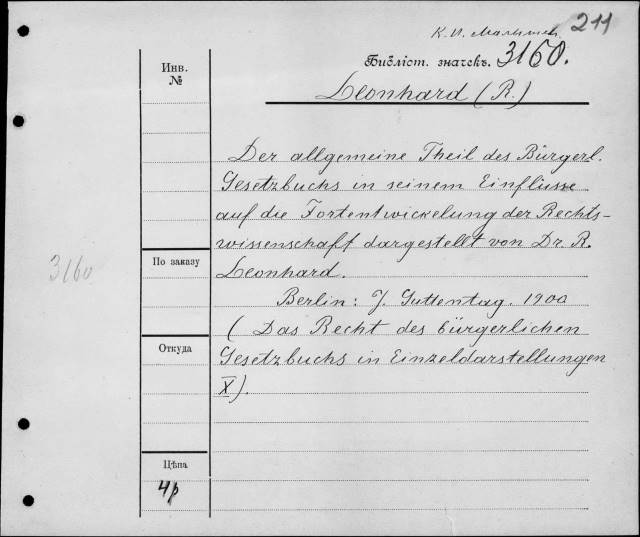 К. И. Малышев 211
Библіот. значекъ. 3160.
Инв.
№
Leonhard (R.)
Der allgemeine Theil des Bürgerl.
Gesetzbuchs in seinem Einflusse
auf die Fortentwickelung der Rechts-
wissenschaft dargestellt von Dr. R.
Leonhard.
3160
По заказу
Berlin: J. Guttentag. 1900
(Das Recht des bürgerlichen
Gesetzbuchs in Einzeldarstellungen
X).
Откуда
Цѣна
4р